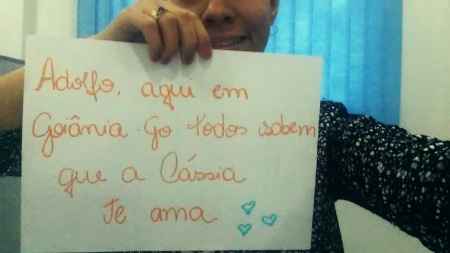 Adolfo, aqui em
Goiânia Go todos sabem
que a Cássia
Te ama